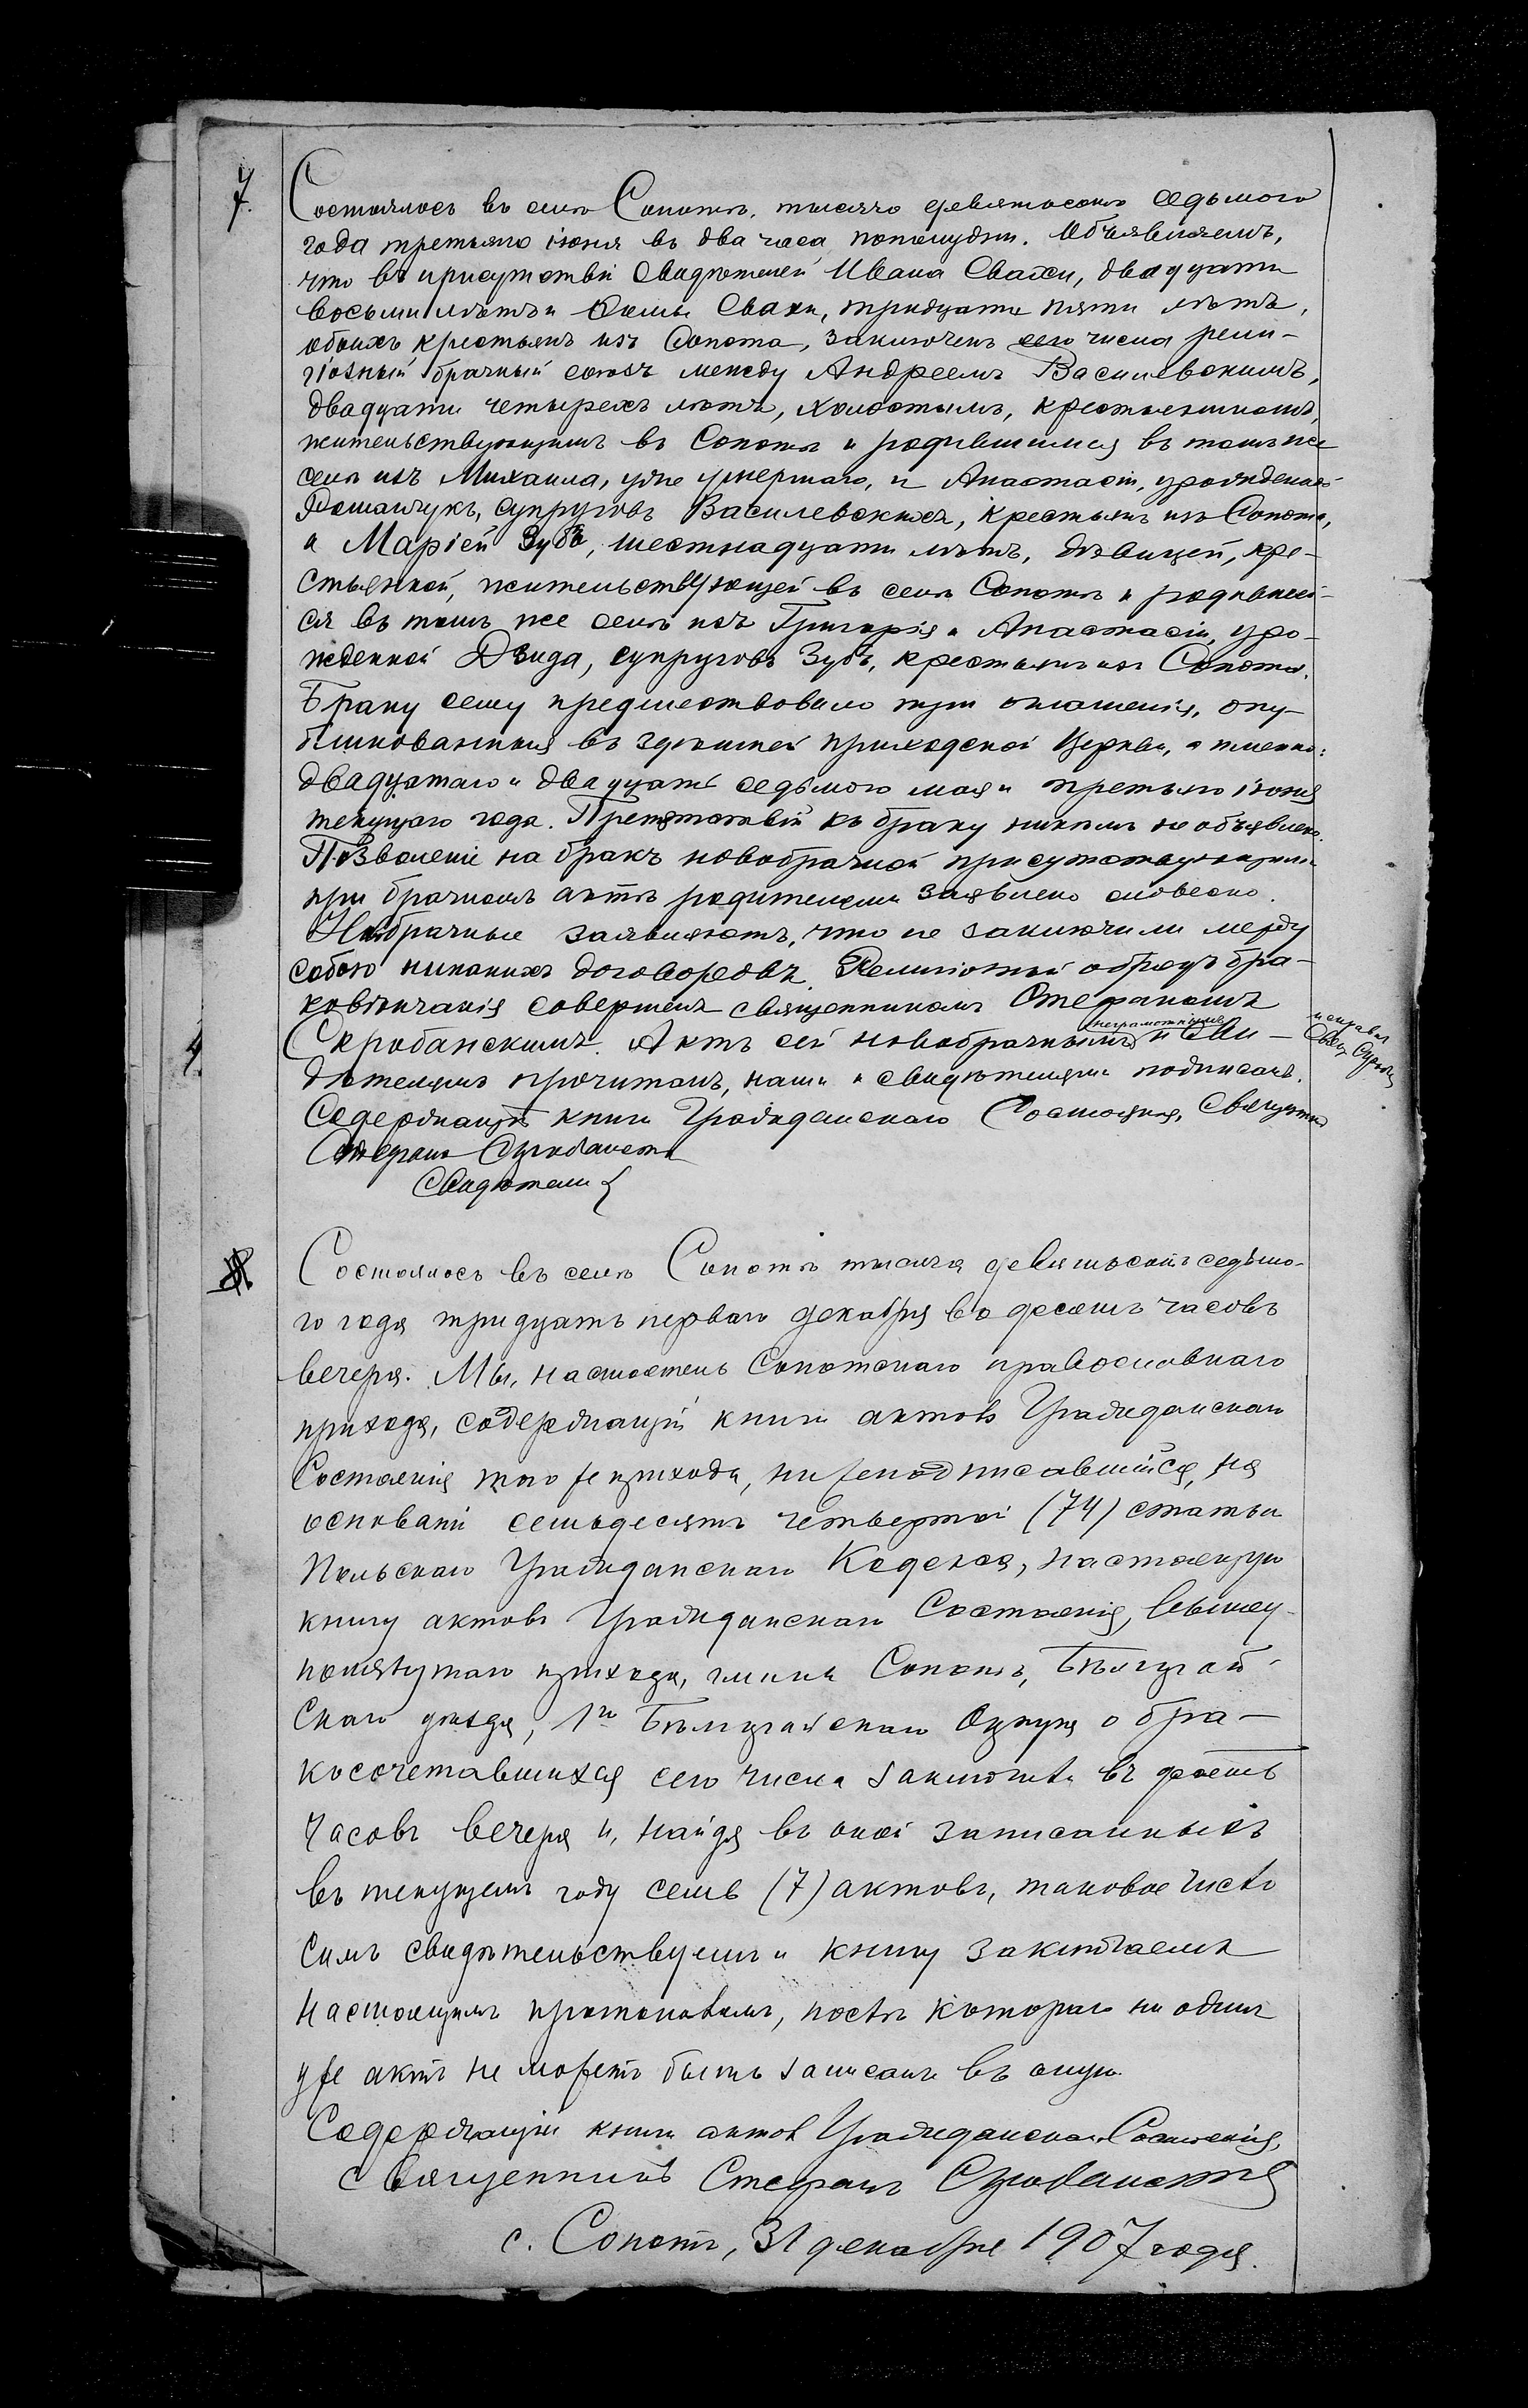 7.
Состоялось въ селѣ Сопотѣ, тысяча девятьсотъ седьмого
года третьяго іюня въ два часа пополудни. Объявляемъ,
что въ присутствіи свидѣтелей Ивана Свахи, двадцати
восьми лѣтъ и Свахи, тридцати пяти лѣтъ,
обоихъ крестьянъ изъ Сопота, заключенъ сего числа рели-
гіозный брачный союзъ между Андреемъ Василевскимъ,
двадцати четырехъ лѣтъ, холостымъ, крестьяниномъ,
жительствующимъ въ Сопотѣ и родившимся въ томъ же
селѣ изъ Михаила, уже умершаго, и Анастасіи, урожденной
супруговъ Василевскихъ, крестьянъ изъ Сопота,
и Маріей Зубъ, шестнадцати лѣтъ, дѣвицей, кре-
стьянкой, жительствующей въ селѣ Сопотѣ и родившей-
ся въ томъ же селѣ изъ Григорія и Анастасіи, уро-
жденной Дзида, супруговъ Зубъ, крестьянъ изъ Сопота.
Браку сему предшествовало три оглашенія, опу-
бликованныя въ здѣшней приходской Церкви, а именно:
двадцатаго и двадцать седьмого мая и третьяго іюня
текущаго года. Препятствій къ браку никѣмъ не объявлено.
Позволеніе на бракъ новобрачной присутствующими
при брачномъ актѣ родителями заявлено словесно.
Новобрачные заявляютъ, что не заключили между
собою никакихъ договоровъ. Религіозный обрядъ бра-
ковѣнчанія совершенъ священникомъ Стефаномъ
Скробанскимъ. Актъ сей новобрачнымъ неграмотнымъ и сви-
дѣтелямъ прочитанъ, нами и свидѣтелями подписанъ.
Содержащій книги Гражданскаго Состоянія, Священникъ
Стефанъ Скробанскій
Свидѣтели {
Состоялось въ селѣ Сопотѣ тысяча девятьсотъ седьмо-
го года тридцать перваго декабря въ десять часовъ
вечера. Мы, настоятель Сопотскаго православнаго
прихода, содержащій книги актовъ Гражданскаго
Состоянія того же прихода, нижеподписавшійся, на
основаніи семьдесятъ четвертой (74) статьи
Польскаго Гражданскаго Кодекса, настоящую
книгу актовъ Гражданскаго Состоянія, вышеу-
помянутаго прихода, гмины Сопотъ, Бѣлгорай-
скаго уѣзда, 1го Бѣлгорайскаго Округа о бра-
косочетавшихся сего числа заключили въ десять
часовъ вечера и, найдя въ оной записанныхъ
въ текущемъ году семь (7) актовъ, таковое число
симъ свидѣтельствуемъ и книгу заключаемъ
настоящимъ протоколомъ, послѣ котораго ни одинъ
уже актъ не можетъ быть записанъ въ оную.
Содержащій книги актовъ Гражданскаго Состоянія,
священникъ Стефанъ Скробанскій
с. Сопотъ, 31 декабря 1907 года.